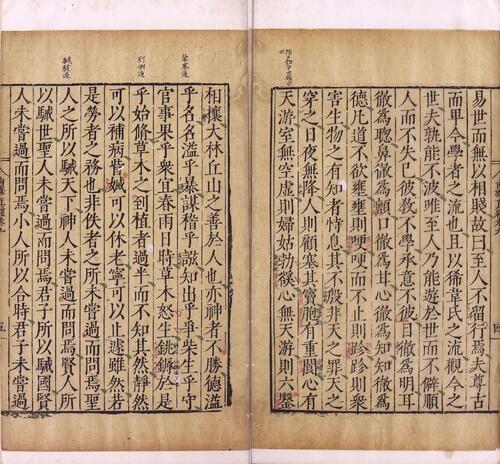 易世而無以相賤故曰至人不留行焉夫尊古
而卑今學者之流也且以狶韋氏之流觀今之
世夫孰能不波唯至人乃能遊於世而不僻順
人而不失己彼教不學承意不彼目徹為明耳
徹為聰鼻徹為顫口徹為甘心徹為知知徹為
德凡道不欲壅壅則哽哽而不止則跈跈則衆
害生物之有知者恃息其不殷非天之罪天之
穿之日夜無降人則顧塞其竇胞有重閬心有
天游室無空虛則婦姑勃豀心無天游則六鑿
相攘大林丘山之善於人也亦神者不勝德溢
乎名名溢乎暴謀稽乎誸知出乎爭柴生乎守
官事果乎衆宜春雨日時草木怒生銚鎒於是
乎始脩草木之到植者過半而不知其然靜然
可以補病眥媙可以休老寧可以止遽雖然若
是勞者之務也非佚者之所未嘗過而問焉聖
人之所以駴天下神人未嘗過而問焉賢人所
以駴世聖人未嘗過而問焉君子所以駴國賢
人未嘗過而問焉小人所以合時君子未嘗過
柴寨通
到倒通